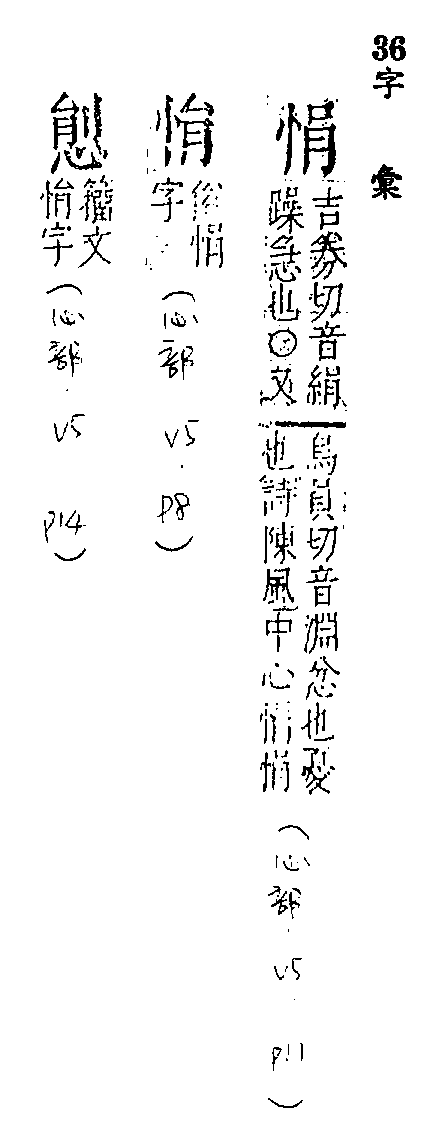 36字 彙
悁
吉券切音絹
躁急也〇又
烏員切音淵忿也憂
也詩陳風中心悁悁
(心部.V5.P11)
俗悁
字
(心部.V5.P8)
籀文
字
(心部.V5.P14)